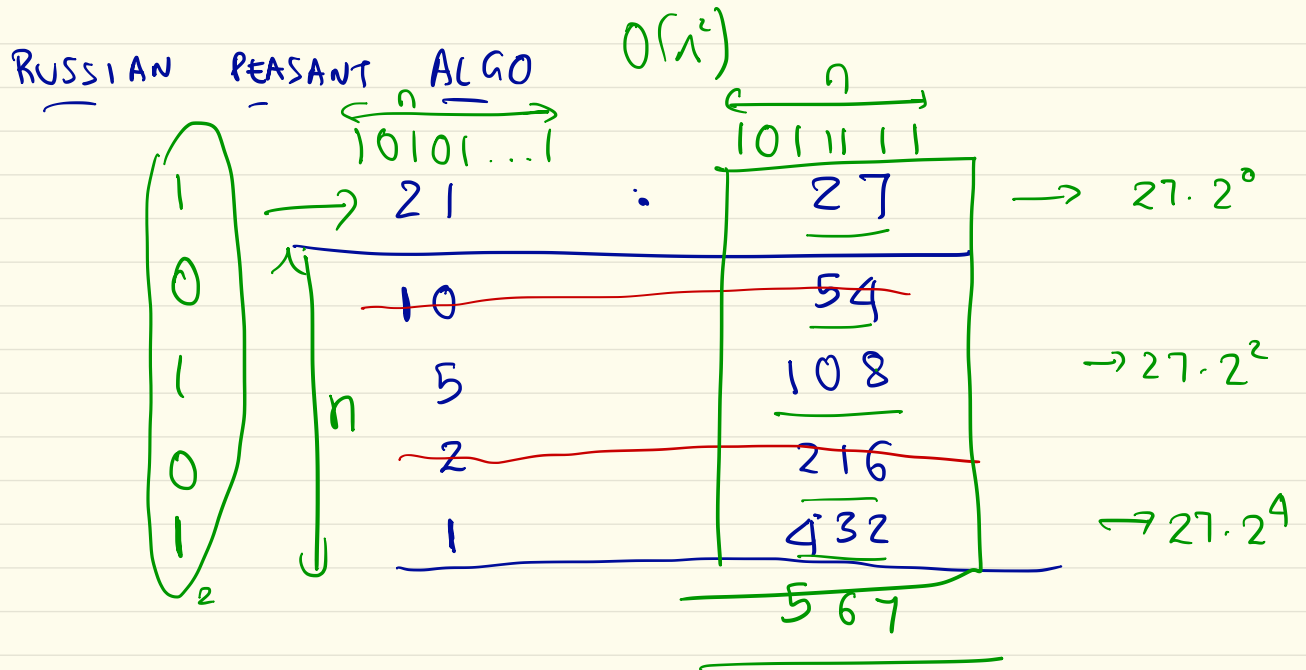 RUSSIAN PEASANT ALGO O(n²)
n n
10101...1 1011111
1 → 21 · 27 → 27.2⁰
0 10 54
1 5 108 → 27.2²
n
0 2 216
1 1 432 → 27.2⁴
2
567